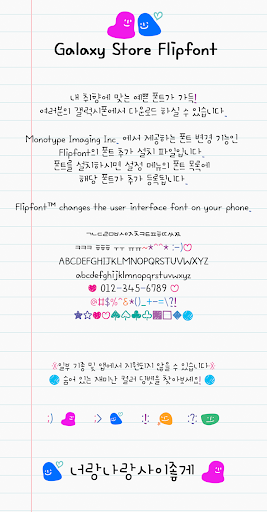 Galaxy Store Flipfont
내 취향에 맞는 예쁜 폰트가 가득!
여러분의 갤럭시폰에서 다운로드 하실 수 있습니다.
Monotype Imaging Inc. 에서 제공하는 폰트 변경 기능인
Flipfont의 폰트 추가 설치 파일입니다.
폰트를 설치하시면 설정 메뉴의 폰트 목록에
해당 폰트가 추가 등록됩니다.
Flipfont™ changes the user interface font on your phone.
ㄱㄴㄷㄹㅁㅂㅅㅇㅈㅊㅋㅌㅍㅎㄸㅆㅉ
ㅋㅋㅋ ㅎㅎㅎ ㅜㅜ ㅠㅠ~*^^* :-)♡
ABCDEFGHIJKLMNOPQRSTUVWXYZ
abcdefghijklmnopqrstuvwxyz
♥ 012-345-6789 ♡
@#$%^&*()_+-=\?!
★☆♥♡♠♤♣♧▦□◆
일부 기종 및 앱에서 지원되지 않을 수 있습니다
숨어 있는 재미난 컬러 딩벳을 찾아보세요!
:) :> :! :( :?
너랑나랑사이좋게